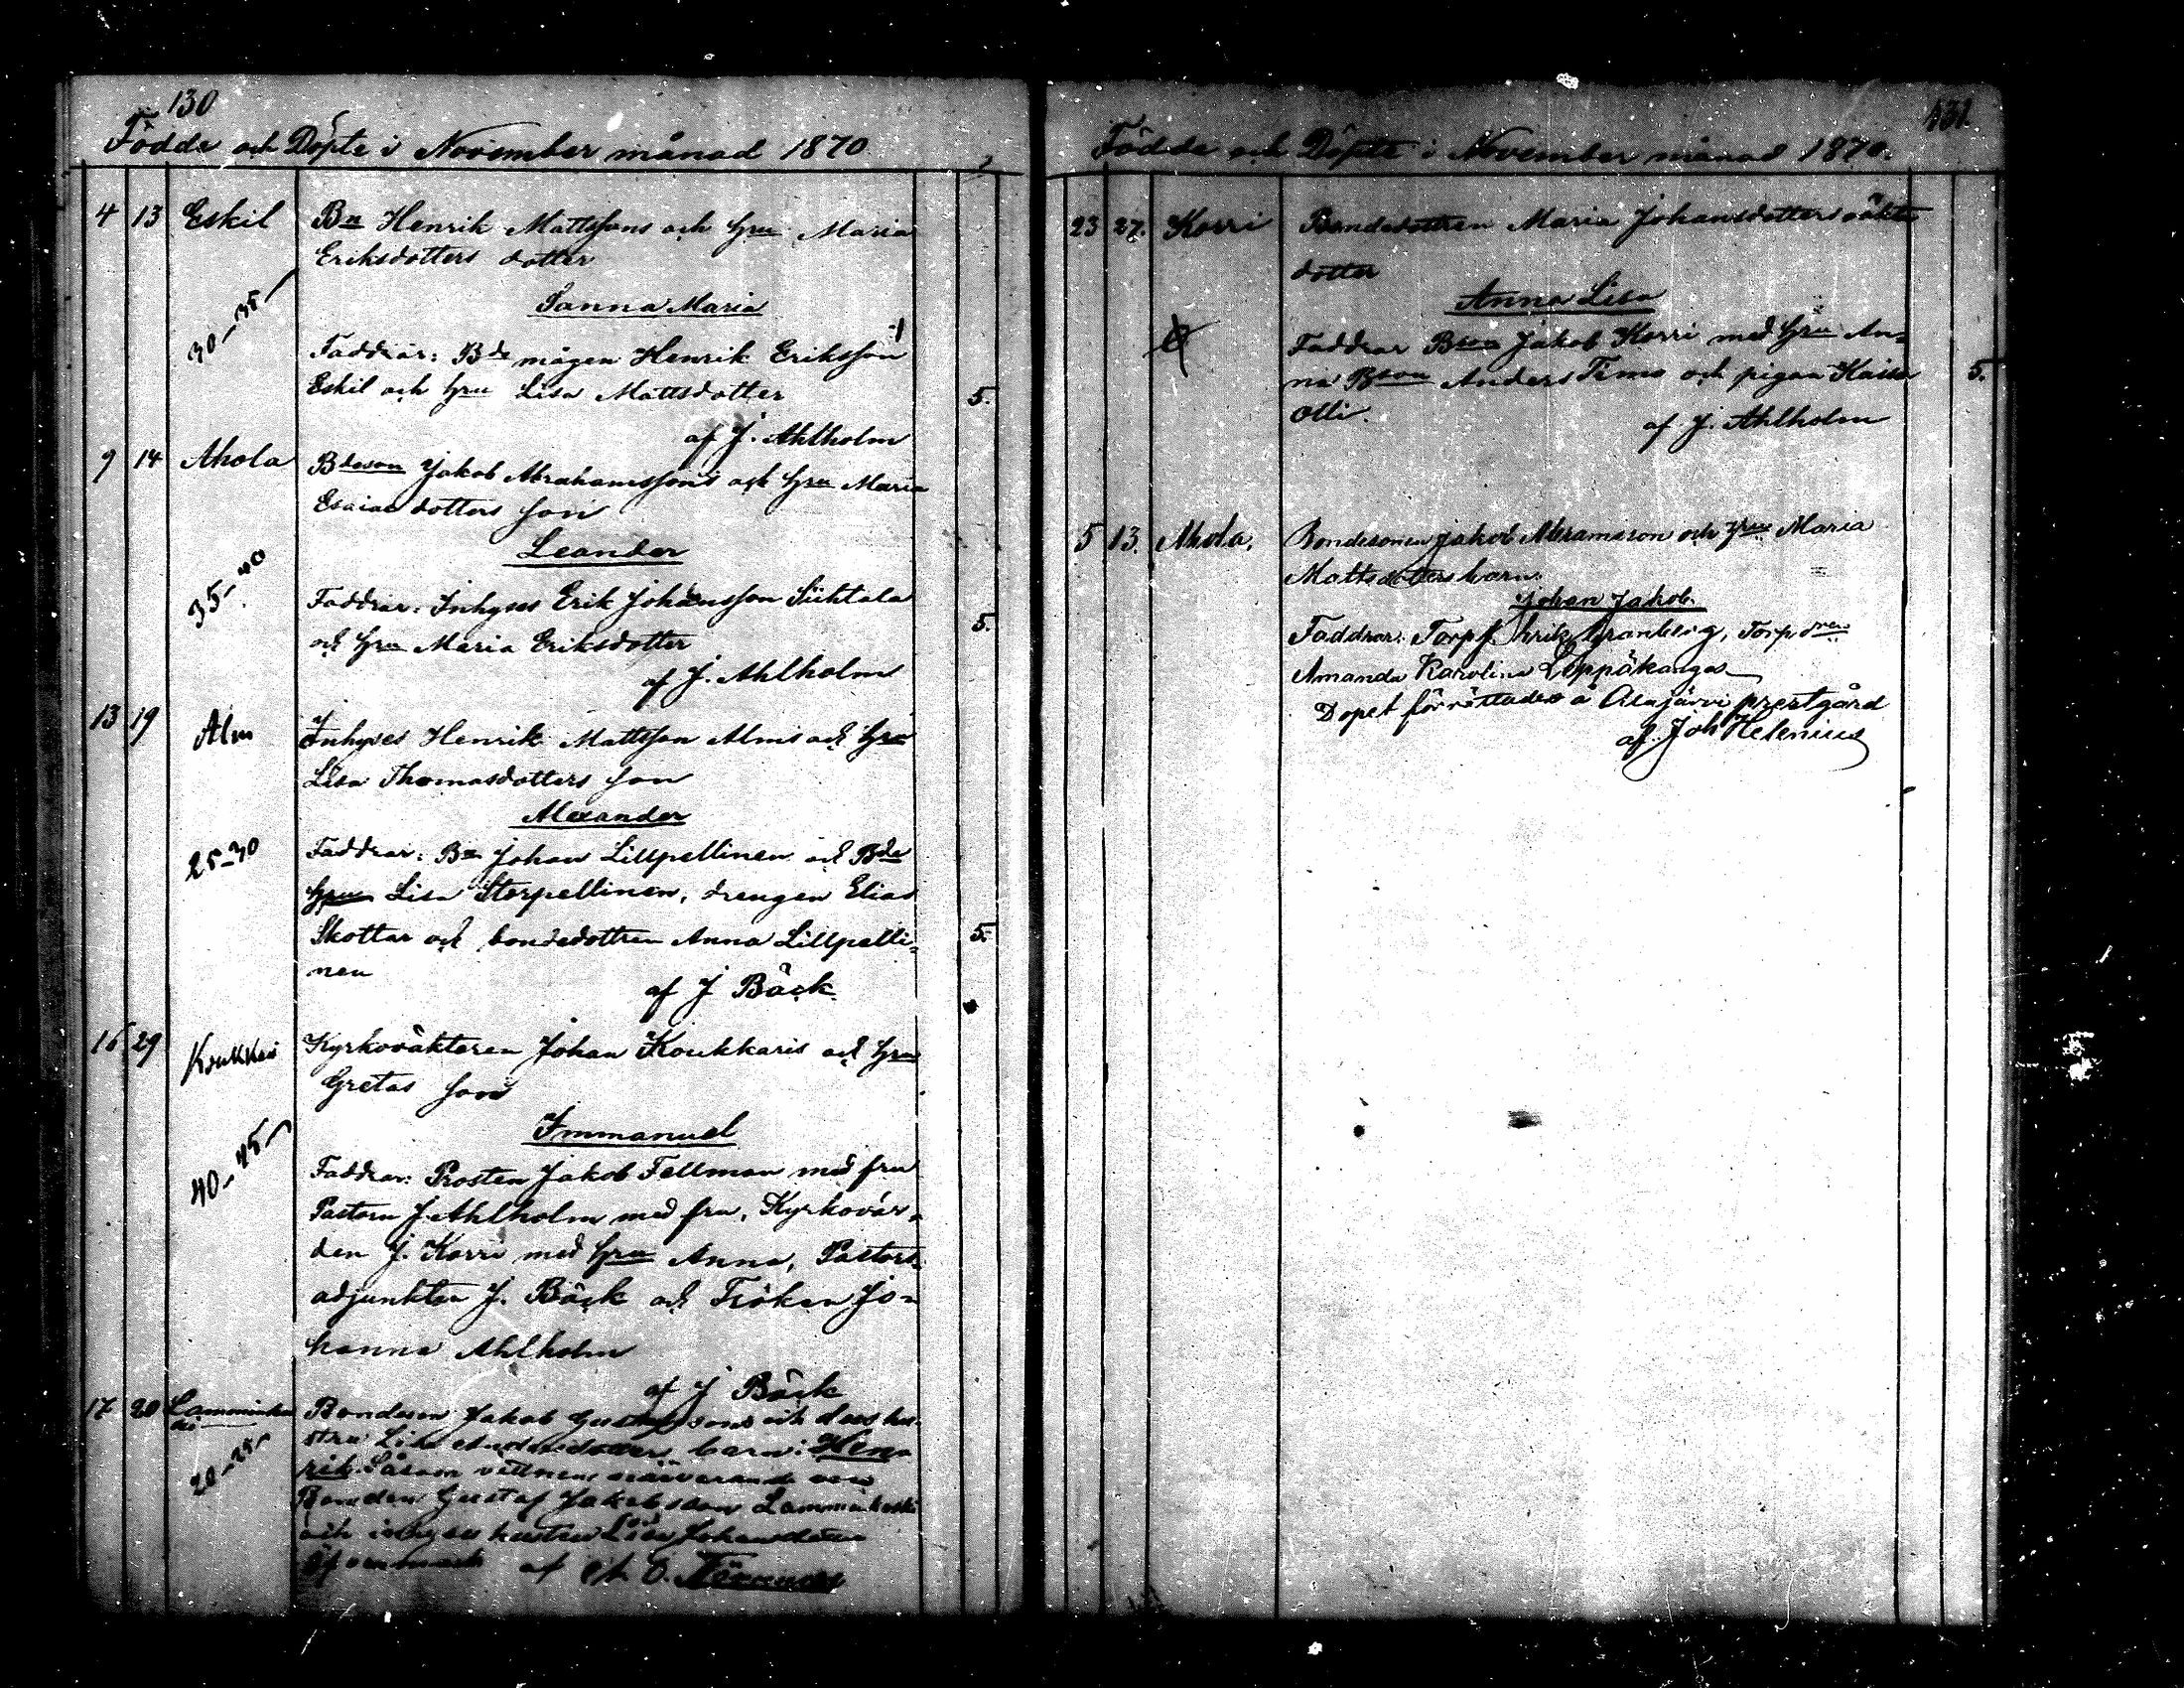 130
Födde och Döpte i November månad 1870
4 13 Eskil Bn Henrik Mattssons och Hru Maria
Eriksdotters dotter
Sanna Maria
30-35
Faddrar: Bde mågen Henrik Eriksson
Eskil och Hru Lisa Mattsdotter
5.
af J. Ahlholm
9 14 Ahola Bdeson Jakob Abrahamssons och Hru Maria
Esaiae dotters son
Leander
35-40
Faddrar: Inhyses Erik Johansson Siihtala
och Hru Maria Eriksdotter
5.
af J. Ahlholm
13 19 Alm Inhyses Henrik Mattsson Alms och Hru
Lisa Thomasdotters son
Alexander
25-30
Faddrar: Bn Johan Lillpellinen och Bde
Hru Lisa Storpellinen, drengen Elias
Skottar och bondedottren Anna Lillpelli=
5.
nen
af J Bäck
16 29 Koukkari Kyrkoväktaren Johan Koukkaris och Hru
Gretas son
Immanuel
40-45
Faddrar: Prosten Jakob Fellman med fru
Pastorn J. Ahlholm med fru, Kyrkovär=
den J. Korri med Hru Anna, Pastors=
adjunkten J. Bäck och Fröken Jo=
hanna Ahlholm
af J Bäck
17 20 Lamminkoski Bondeson Jakob Gustafssons och dess hu-
stru Lisa Andersdotter barn: Hen-
rik. Såsom vittnen närvarande voro
20-25
Bonden Gustaf Jakobsson Lamminkoski
och inhyses hustru Lisa Johansdotter
af
131.
Födde och Döpte i November månad 1870.
23 27. Korri Bondedottren Maria Johansdotters oäkta
dotter
Anna Lisa
Faddrar Bson Jakob Korri med Hru An=
na Bson Anders Timo och pigan Kaisa
5.
Olli.
af J. Ahlholm
5 13. Ahola. Bondesonen Jakob Abramsson och Hru Maria
Mattsdotters barn.
Johan Jakob.
Faddrar: Torp. Erik Granberg, Torpdrn
Amanda Karolina Leppäkangas
Dopet förrättades å Alajärvi prestgård
af. Joh Helenius